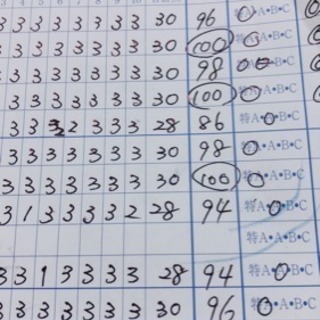 3 3 3 3 3 3 3 30 96 特A・A・B・C
3 3 3 3 3 3 3 30 100 特A・A・B・C
3 3 3 3 3 3 3 30 98 特A・A・B・C
3 3 3 3 3 3 3 30 100 特A・A・B・C
3 3 2 3 3 3 28 86 特A・A・B・C
3 3 3 3 3 3 3 30 98 特A・A・B・C
3 3 3 3 3 3 3 30 100 特A・A・B・C
3 1 3 3 3 3 2 28 94 特A・A・B・C
特A・A・B・C
3 3 1 3 3 3 3 28 94 特A・A・B・C
3 3 3 3 3 3 3 30 96 特A・A・B・C